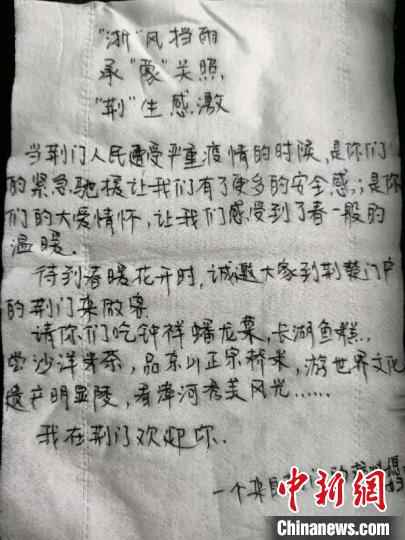 "浙"风挡雨
承"豫"关照,
"荆"生感激
当荆门人民遭受严重疫情的时候,是你们
的紧急驰援让我们有了更多的安全感;是你
们的大爱情怀,让我们感受到了春一般的
温暖.
待到春暖花开时,诚邀大家到荆楚门户
的荆门来做客
请你们吃钟祥蟠龙菜,长湖鱼糕,
尝沙洋 ,品京山正宗桥米,游世界文化
遗产明显陵,看漳河秀美风光......
我在荆门欢迎你.
一个来自荆门的
中新网
Chinanews.com